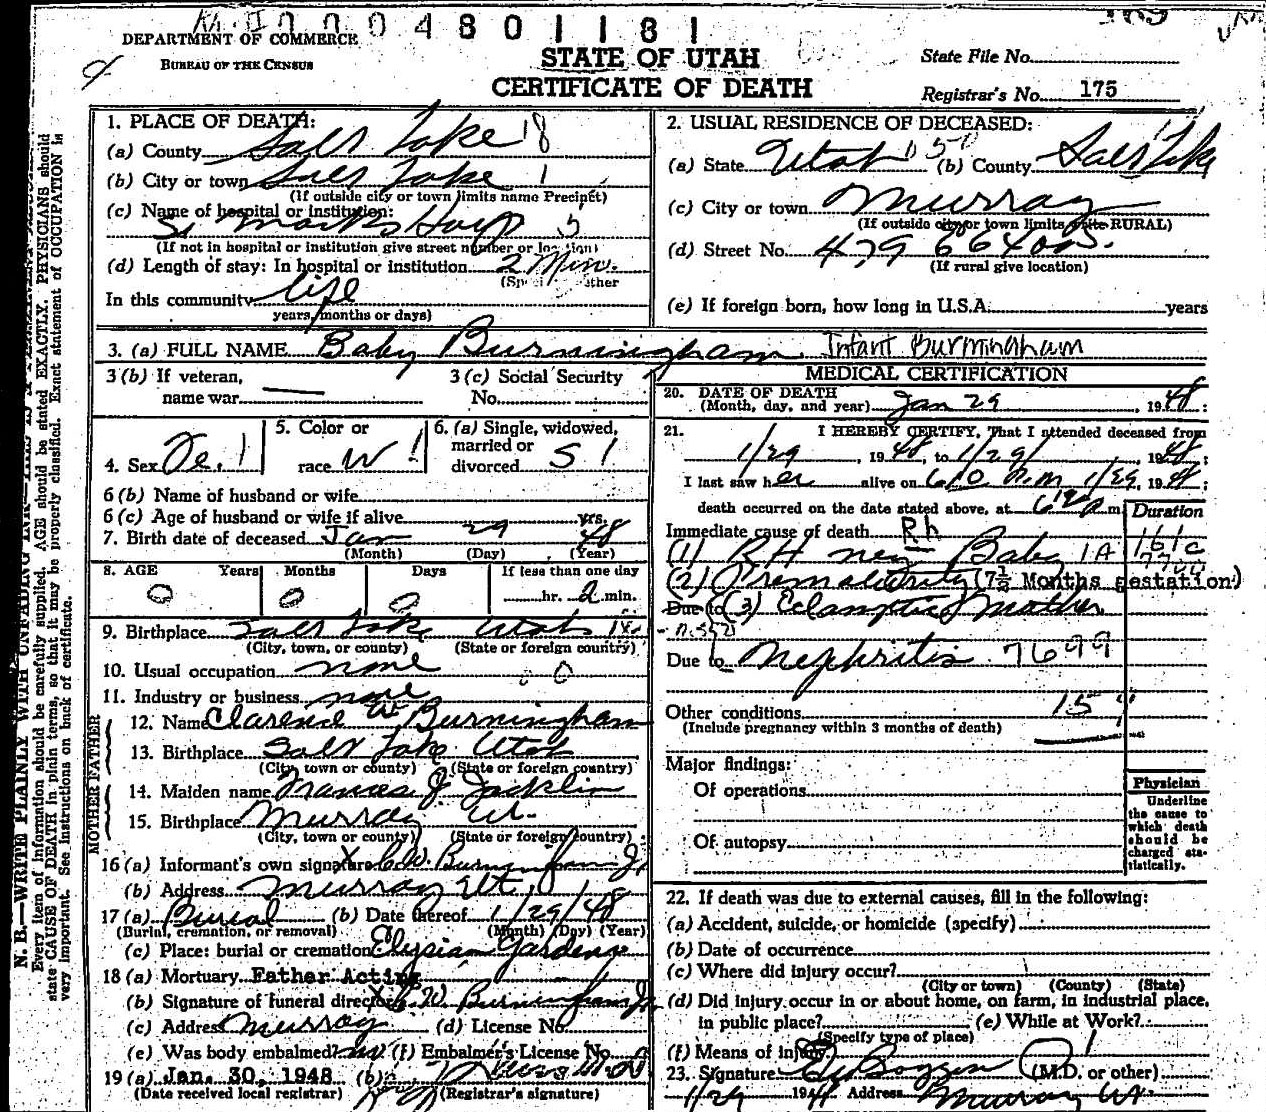 0004801181
DEPARTMENT OF COMMERCE
BUREAU OF THE CENSUS
STATE OF UTAH
CERTIFICATE OF DEATH
State File No.
Registrar's No. 175
N. B.—WRITE PLAINLY WITH UNFADING INK
Every item of information should be carefully supplied. AGE should be stated EXACTLY. PHYSICIANS should
state CAUSE OF DEATH in plain terms, so that it may be properly classified. Exact statement of OCCUPATION is
very important. See instructions on back of certificate.
1. PLACE OF DEATH:
(a) County Salt Lake 18
(b) City or town Salt Lake 1
(If outside city or town limits name Precinct)
(c) Name of hospital or institution:
St Marks Hosp 5
(If not in hospital or institution give street number or location)
(d) Length of stay: In hospital or institution 2 Min.
In this community life
years, months or days)
2. USUAL RESIDENCE OF DECEASED:
(a) State Utah (b) County Salt Lake
(c) City or town Murray
(If outside city or town limits write RURAL)
(d) Street No. 479
(If rural give location)
(e) If foreign born, how long in U.S.A. years
3. (a) FULL NAME Baby Burningham Infant Burmingham
3 (b) If veteran,
name war
3 (c) Social Security
No.
4. Sex Fe. 1
5. Color or
race W 1
6. (a) Single, widowed,
married or
divorced S 1
6 (b) Name of husband or wife
6 (c) Age of husband or wife if alive yrs.
7. Birth date of deceased Jan 29 48
(Month) (Day) (Year)
8. AGE Years Months Days If less than one day
0 0 0 hr. 2 min.
9. Birthplace Salt Lake Utah
(City, town, or county) (State or foreign country)
10. Usual occupation none 0
11. Industry or business none
FATHER
12. Name Clarence W Burningham
13. Birthplace Salt Lake Utah
(City, town or county) (State or foreign country)
MOTHER
14. Maiden name Frances J Jacklin
15. Birthplace Murray Ut.
(City, town or county) (State or foreign country)
16 (a) Informant's own signature x C. W. Burningham Jr
(b) Address Murray Ut
17 (a) Burial (b) Date thereof 1/29/48
(Burial, cremation, or removal) (Month) (Day) (Year)
(c) Place: burial or cremation Elysian Gardens
18 (a) Mortuary Father Acting
(b) Signature of funeral director x C. W. Burningham Jr
(c) Address Murray (d) License No.
(e) Was body embalmed? no (f) Embalmer's License No.
19 (a) Jan. 30, 1948 (b)
(Date received local registrar) (Registrar's signature)
MEDICAL CERTIFICATION
20. DATE OF DEATH
(Month, day, and year) Jan 29, 1948;
21. I HEREBY CERTIFY, That I attended deceased from
1/29, 1948, to 1/29, 1948;
I last saw her alive on 6:10 P.m 1/29, 1948;
death occurred on the date stated above, at 6:12 P m
Duration
Immediate cause of death Rh
(1) RH neg Baby 1A 161c
(2) Prematurity (7½ Months gestation)
Due to (3) Eclamptic mother
Due to Nephritis 7699
Other conditions 15
(Include pregnancy within 3 months of death)
Major findings:
Of operations
Of autopsy
Physician
Underline
the cause to
which death
should be
charged sta-
tistically.
22. If death was due to external causes, fill in the following:
(a) Accident, suicide, or homicide (specify)
(b) Date of occurrence
(c) Where did injury occur?
(City or town) (County) (State)
(d) Did injury occur in or about home, on farm, in industrial place,
in public place? (e) While at Work?
(Specify type of place)
(f) Means of injury
23. Signature (M.D. or other)
1/29 194 Address Murray Ut